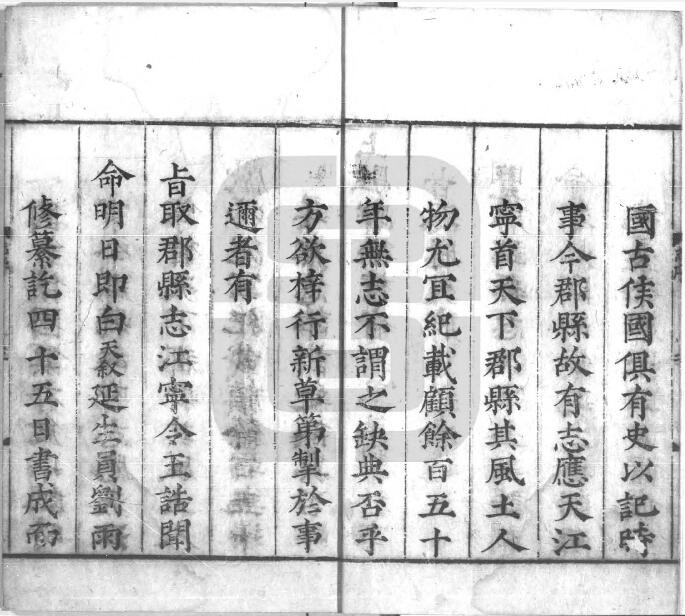 國古侯國俱有史以記時
事今郡縣故有志應天江
寧首天下郡縣其風土人
物尤宜紀載顧餘百五十
年無志不謂之缺典否乎
方欲梓行新草第掣於事
邇者有
旨取郡縣志江寧令王誥聞
命明日即白天敘延生員劉雨
修纂訖四十五日書成雨